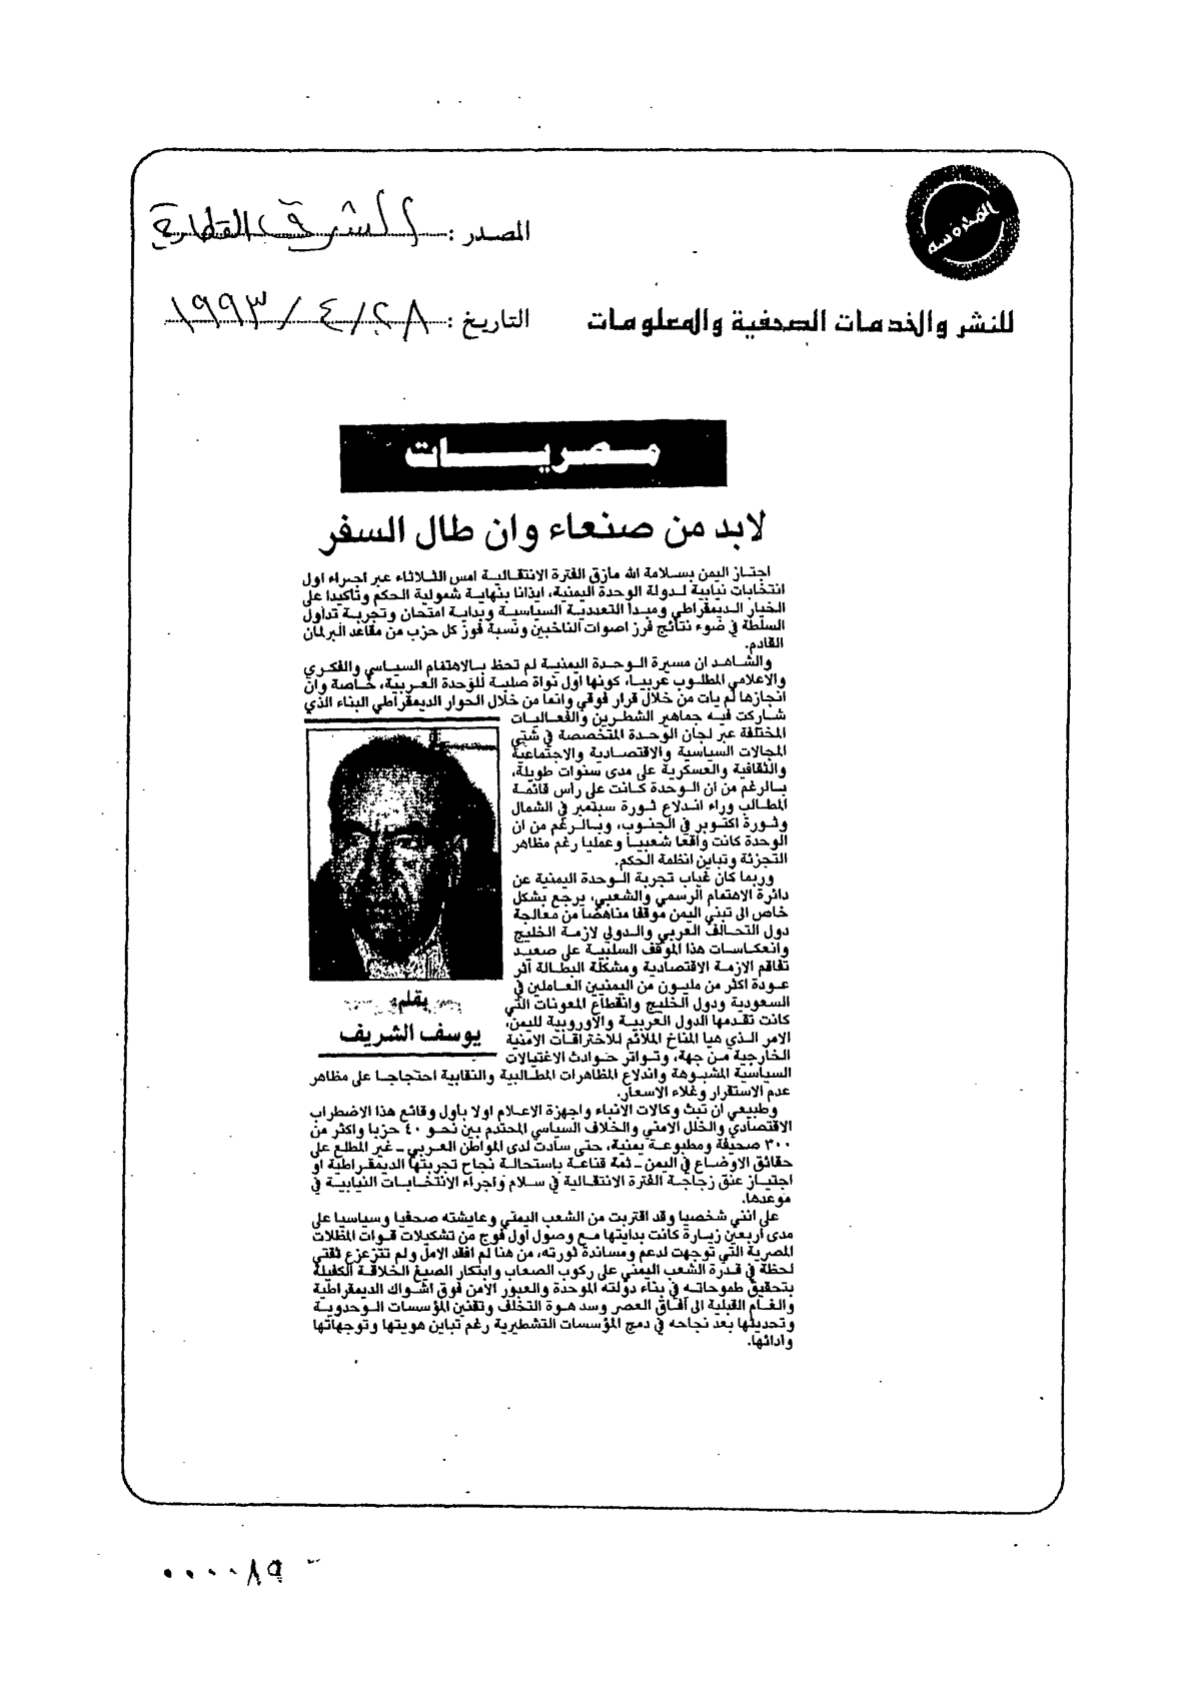 المحروسة
المصدر: الشرق القطرية
للنشر والخدمات الصحفية والمعلومات
التاريخ: ٢٨/٤/١٩٩٣
مصريات
لابد من صنعاء وان طال السفر
اجتاز اليمن بسلامة الله مازق الفترة الانتقالية امس الثلاثاء عبر اجراء اول
انتخابات نيابية لدولة الوحدة اليمنية، ايذانا بنهاية شمولية الحكم وتاكيدا على
الخيار الديمقراطي ومبدا التعددية السياسية وبداية امتحان وتجربة تداول
السلطة في ضوء نتائج فرز اصوات الناخبين ونسبة فوز كل حزب من مقاعد البرلمان
القادم.
والشاهد ان مسيرة الوحدة اليمنية لم تحظ بالاهتمام السياسي والفكري
والاعلامي المطلوب عربيا، كونها اول نواة صلبة للوحدة العربية، خاصة وان
انجازها لم يات من خلال قرار فوقي وانما من خلال الحوار الديمقراطي البناء الذي
شاركت فيه جماهير الشطرين والفعاليات
المختلفة عبر لجان الوحدة المتخصصة في شتى
المجالات السياسية والاقتصادية والاجتماعية
والثقافية والعسكرية على مدى سنوات طويلة،
بالرغم من ان الوحدة كانت على راس قائمة
المطالب وراء اندلاع ثورة سبتمبر في الشمال
وثورة اكتوبر في الجنوب، وبالرغم من ان
الوحدة كانت واقعا شعبيا وعمليا رغم مظاهر
التجزئة وتباين انظمة الحكم.
وربما كان غياب تجربة الوحدة اليمنية عن
دائرة الاهتمام الرسمي والشعبي، يرجع بشكل
خاص الى تبني اليمن موقفا مناهضا من معالجة
دول التحالف العربي والدولي لازمة الخليج
وانعكاسات هذا الموقف السلبية على صعيد
تفاقم الازمة الاقتصادية ومشكلة البطالة اثر
عودة اكثر من مليون من اليمنيين العاملين في
السعودية ودول الخليج وانقطاع المعونات التي
كانت تقدمها الدول العربية والاوروبية لليمن،
الامر الذي هيا المناخ الملائم للاختراقات الامنية
الخارجية من جهة، وتواتر حوادث الاغتيالات
السياسية المشبوهة واندلاع المظاهرات المطالبية والنقابية احتجاجا على مظاهر
عدم الاستقرار وغلاء الاسعار.
بقلم
يوسف الشريف
وطبيعي ان تبث وكالات الانباء واجهزة الاعلام اولا باول وقائع هذا الاضطراب
الاقتصادي والخلل الامني والخلاف السياسي المحتدم بين نحو ٤٠ حزبا واكثر من
٣٠٠ صحيفة ومطبوعة يمنية، حتى سادت لدى المواطن العربي - غير المطلع على
حقائق الاوضاع في اليمن - ثمة قناعة باستحالة نجاح تجربتها الديمقراطية او
اجتياز عنق زجاجة الفترة الانتقالية في سلام واجراء الانتخابات النيابية في
موعدها.
على انني شخصيا وقد اقتربت من الشعب اليمني وعايشته صحفيا وسياسيا على
مدى اربعين زيارة كانت بدايتها مع وصول اول فوج من تشكيلات قوات المظلات
المصرية التي توجهت لدعم ومساندة ثورته، من هنا لم افقد الامل ولم تتزعزع ثقتي
لحظة في قدرة الشعب اليمني على ركوب الصعاب وابتكار الصيغ الخلاقة الكفيلة
بتحقيق طموحاته في بناء دولته الموحدة والعبور الامن فوق اشواك الديمقراطية
والغام القبلية الى آفاق العصر وسد هوة التخلف وتقنين المؤسسات الوحدوية
وتحديثها بعد نجاحه في دمج المؤسسات التشطيرية رغم تباين هويتها وتوجهاتها
وادائها.
٠٠٠٠٨٩